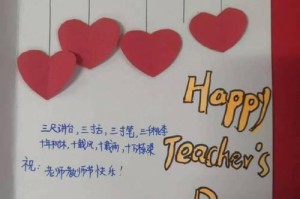 三尺讲台，三寸舌，三寸笔，三千桃李
十年树木，十载风，十载雨，十万栋梁
祝：老师教师节快乐！
Happy
Teacher's